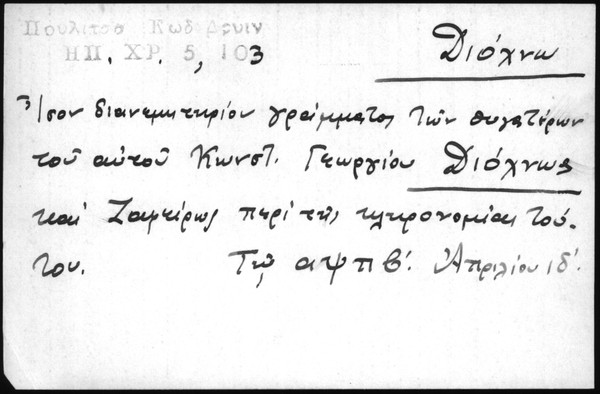 Πουλίτσα Κωδ Δρυιν
ΗΠ. ΧΡ. 5, 103
Διόχνω
Ἴσον διανεμητηρίου γράμματος τῶν θυγατέρων
τοῦ αὐτοῦ Κωνστ. Γεωργίου Διόχνως
καὶ Ζαφείρως περὶ τῆς κληρονομίας τού-
του. Τῷ αψπβ΄. Ἀπριλίου ιδ΄.